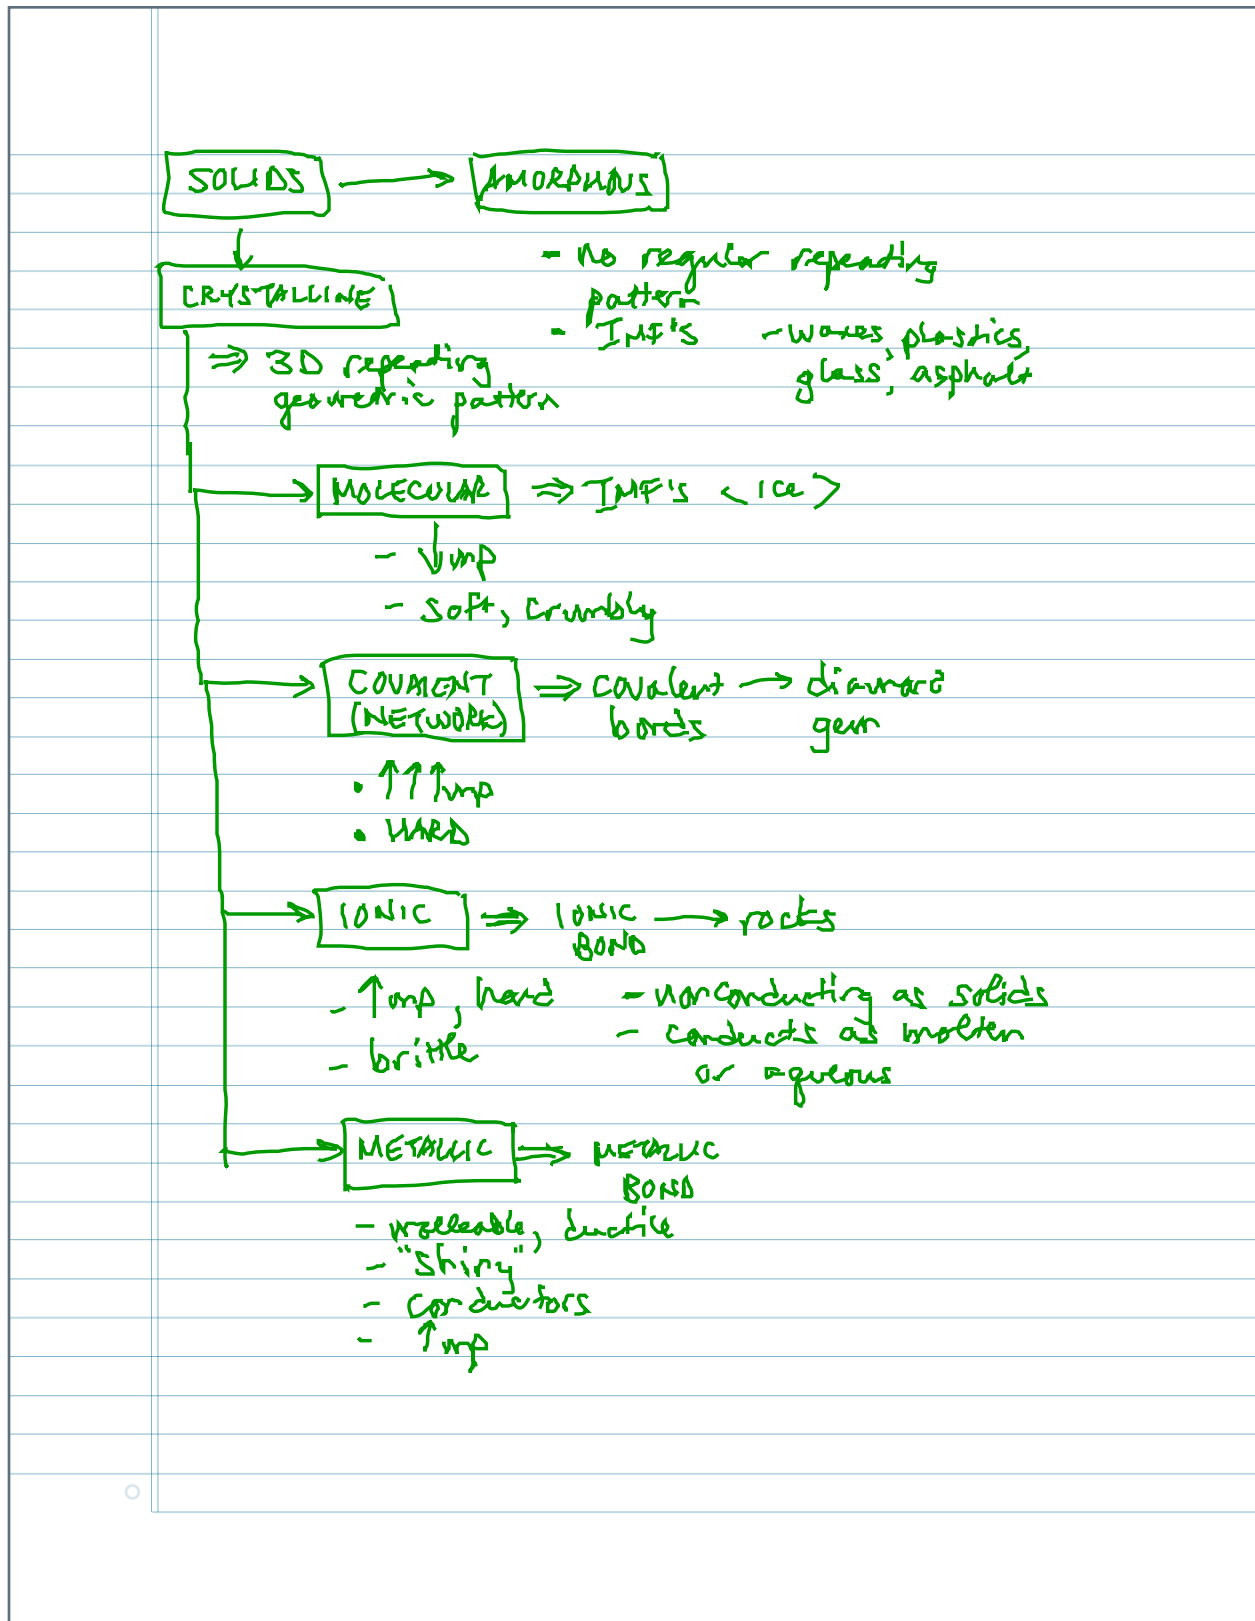 SOLIDS → AMORPHOUS
- no regular repeating
pattern
- IMF's - waxes, plastics,
glass, asphalt
CRYSTALLINE
⇒ 3D repeating
geometric pattern
MOLECULAR ⇒ IMF's < ice >
- ↓ mp
- soft, crumbly
COVALENT
(NETWORK)
⇒ covalent → diamond
bonds gem
• ↑↑↑ mp
• HARD
IONIC ⇒ IONIC → rocks
BOND
- ↑ mp, hard - nonconducting as solids
- brittle - conducts as molten
or aqueous
METALLIC ⇒ METALLIC
BOND
- malleable, ductile
- "shiny"
- conductors
- ↑ mp